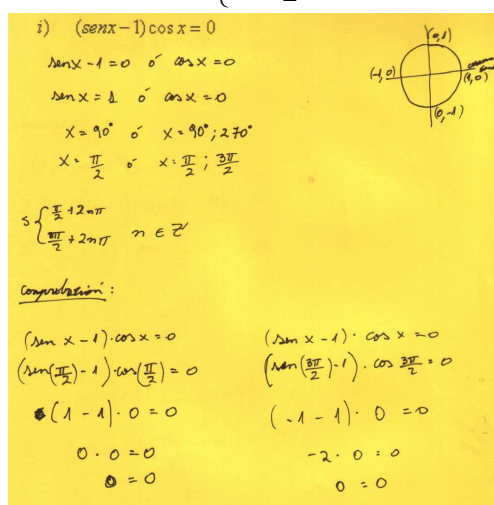 i) (senx-1)cos x = 0
(0,1)
(-1,0)
(1,0)
(0,-1)
sen x - 1 = 0 ó cos x = 0
sen x = 1 ó cos x = 0
x = 90° ó x = 90°; 270°
x = π/2 ó x = π/2 ; 3π/2
S { π/2 + 2nπ
3π/2 + 2nπ n ∈ Z
Comprobación:
(sen x - 1)·cos x = 0
(sen(π/2) - 1)·cos(π/2) = 0
(1 - 1)·0 = 0
0 · 0 = 0
0 = 0
(sen x - 1)· cos x = 0
(sen(3π/2) - 1)· cos 3π/2 = 0
(-1 - 1)· 0 = 0
-2 · 0 = 0
0 = 0